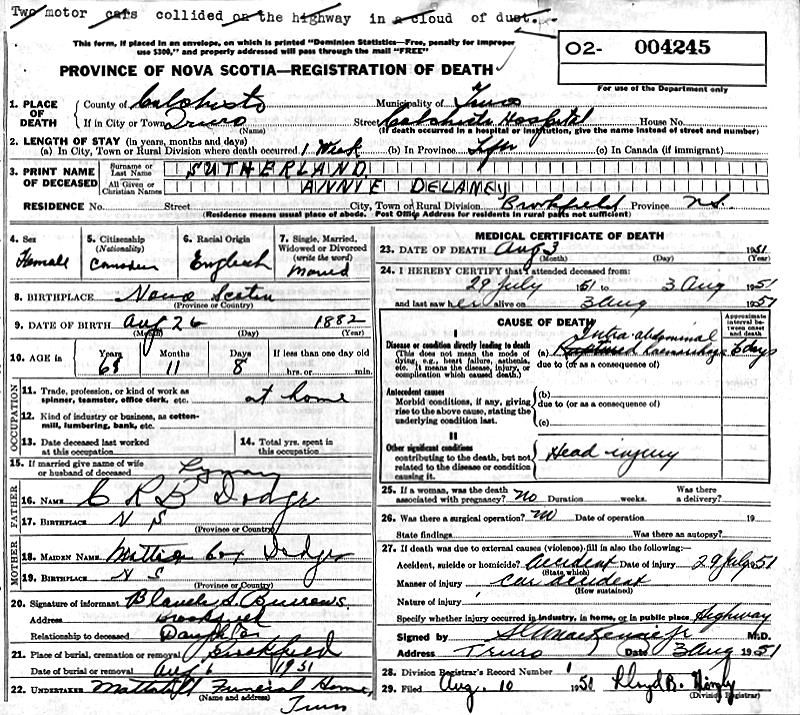 Two motor cars collided on the highway in a cloud of dust.
This form, if placed in an envelope, on which is printed "Dominion Statistics—Free, penalty for improper
use $300," and properly addressed will pass through the mail "FREE"
O2- 004245
For use of the Department only
PROVINCE OF NOVA SCOTIA—REGISTRATION OF DEATH
1. PLACE OF DEATH
County of Colchester Municipality of Truro
If in City or Town Truro Street Colchester Hospital House No.
(Name) (If death occurred in a hospital or institution, give the name instead of street and number)
2. LENGTH OF STAY (in years, months and days)
(a) In City, Town or Rural Division where death occurred 1 Week (b) In Province Life (c) In Canada (if immigrant)
3. PRINT NAME OF DECEASED
Surname or Last Name SUTHERLAND
All Given or Christian Names ANNIE DELANEY
RESIDENCE No. Street City, Town or Rural Division Brookfield Province N.S.
(Residence means usual place of abode. Post Office Address for residents in rural parts not sufficient)
4. Sex Female
5. Citizenship (Nationality) Canadian
6. Racial Origin English
7. Single, Married, Widowed or Divorced (write the word) Married
8. BIRTHPLACE Nova Scotia
(Province or Country)
9. DATE OF BIRTH Aug 26 1882
(Month) (Day) (Year)
10. AGE in Years 68 Months 11 Days 8 If less than one day old
hrs. or min.
OCCUPATION
11. Trade, profession, or kind of work as spinner, teamster, office clerk, etc. at home
12. Kind of industry or business, as cotten-mill, lumbering, bank, etc.
13. Date deceased last worked at this occupation
14. Total yrs. spent in this occupation
15. If married give name of wife or husband of deceased
FATHER
16. NAME C R B Dodge
17. BIRTHPLACE N S
(Province or Country)
MOTHER
18. MAIDEN NAME Cox Dodge
19. BIRTHPLACE N S
(Province or Country)
20. Signature of informant Blanche S. Burrows
Address Brookfield
Relationship to deceased Daughter
21. Place of burial, cremation or removal Brookfield
Date of burial or removal Aug 6 1951
22. UNDERTAKER Mattatall Funeral Home,
(Name and address)
Truro
MEDICAL CERTIFICATE OF DEATH
23. DATE OF DEATH Aug 3 1951
(Month) (Day) (Year)
24. I HEREBY CERTIFY that I attended deceased from:
29 July 1951 to 3 Aug 1951
and last saw her alive on 3 Aug 1951
CAUSE OF DEATH
Approximate interval between onset and death
I
Disease or condition directly leading to death
(This does not mean the mode of dying, e.g., heart failure, asthenia, etc. It means the disease, injury, or complication which caused death.)
Intra-abdominal
(a) haemorrhage 6 days
due to (or as a consequence of)
Antecedent causes
Morbid conditions, if any, giving rise to the above cause, stating the underlying condition last.
(b)
due to (or as a consequence of)
(c)
II
Other significant conditions contributing to the death, but not related to the disease or condition causing it.
Head injury
25. If a woman, was the death associated with pregnancy? no Duration weeks. Was there a delivery?
26. Was there a surgical operation? no Date of operation 19
State findings Was there an autopsy?
27. If death was due to external causes (violence) fill in also the following:—
Accident, suicide or homicide? Accident Date of injury 29 July 1951
(State which)
Manner of injury car accident
(How sustained)
Nature of injury
Specify whether injury occurred in industry, in home, or in public place Highway
Signed by M.D.
Address Truro Date 3 Aug 1951
28. Division Registrar's Record Number 1
29. Filed Aug. 10 1951 Lloyd B.
(Division Registrar)